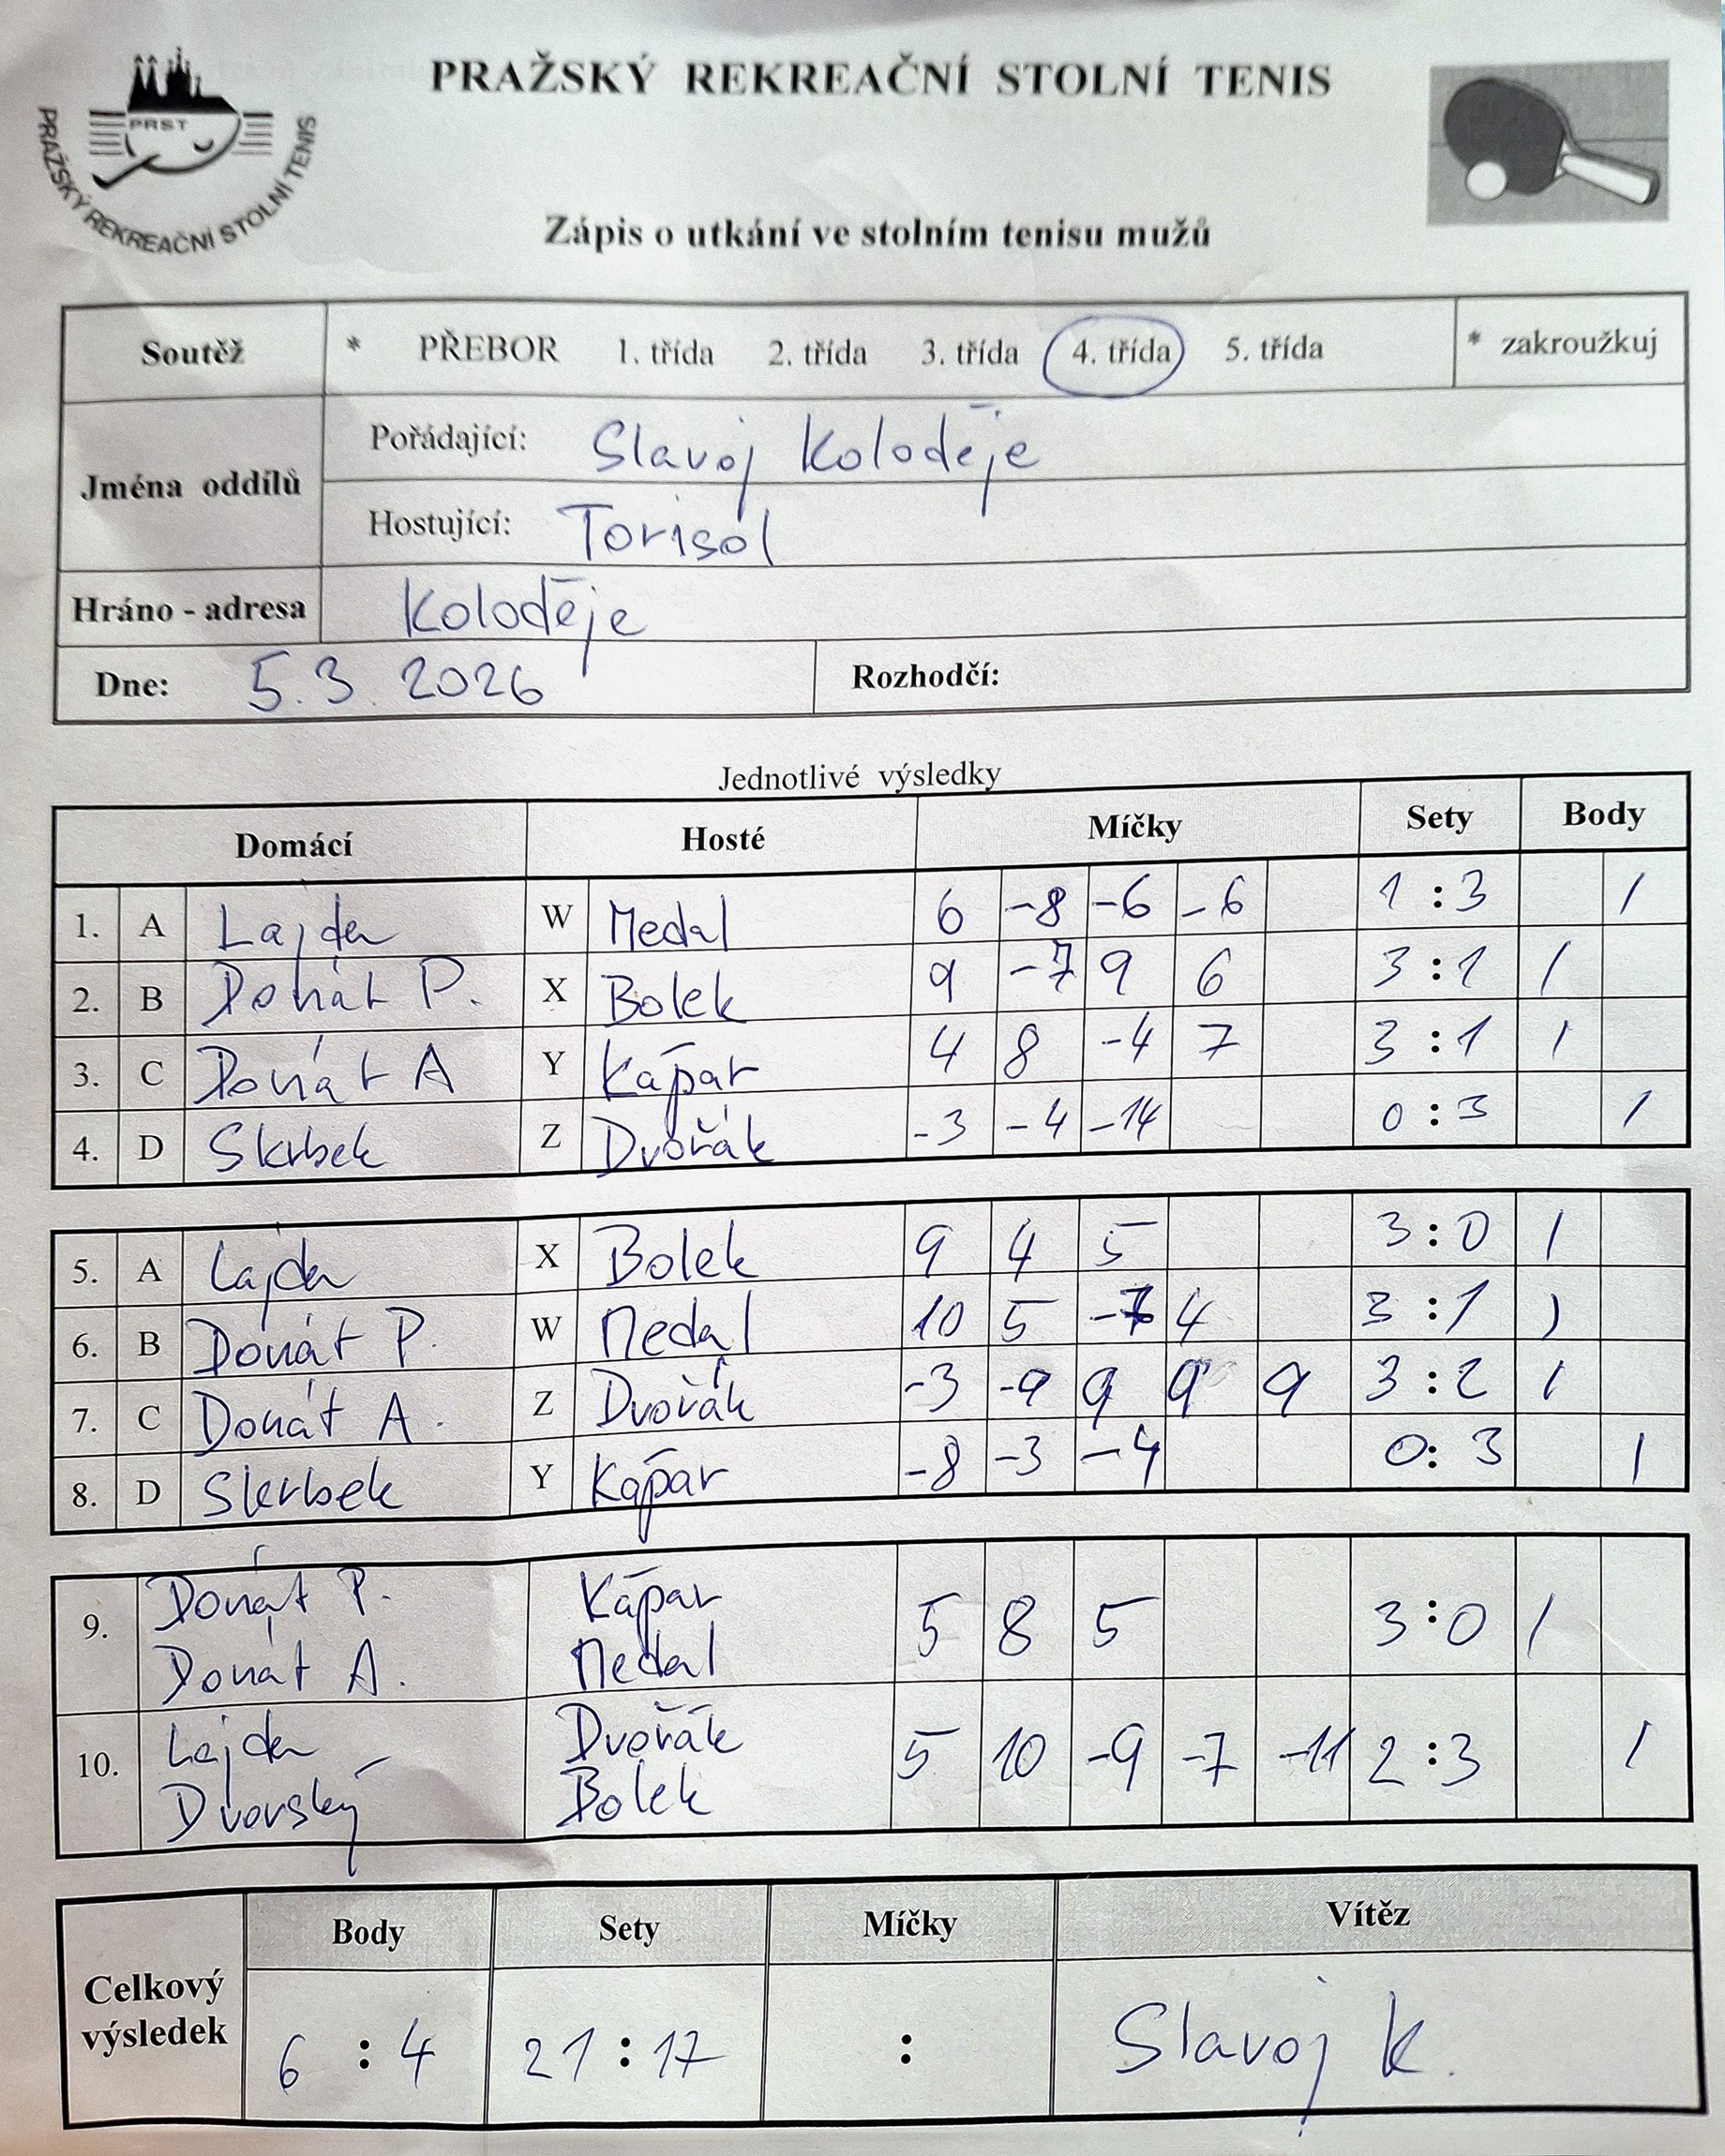 PRAŽSKÝ REKREAČNÍ STOLNÍ TENIS
PRST
PRAŽSKÝ REKREAČNÍ STOLNÍ TENIS
Zápis o utkání ve stolním tenisu mužů
Soutěž * PŘEBOR 1. třída 2. třída 3. třída 4. třída 5. třída * zakroužkuj
Jména oddílů
Pořádající: Slavoj Koloděje
Hostující: Torisol
Hráno - adresa Koloděje
Dne: 5.3. 2026 Rozhodčí:
Jednotlivé výsledky
Domácí Hosté Míčky Sety Body
1. A Lajda W Medal 6 -8 -6 -6 1 : 3 1
2. B Donát P. X Bolek 9 -7 9 6 3 : 1 1
3. C Donát A Y Kápar 4 8 -4 7 3 : 1 1
4. D Skrbek Z Dvořák -3 -4 -14 0 : 3 1
5. A Lajda X Bolek 9 4 5 3 : 0 1
6. B Donát P. W Medal 10 5 -7 4 3 : 1 1
7. C Donát A. Z Dvořák -3 -9 9 9 9 3 : 2 1
8. D Skrbek Y Kápar -8 -3 -4 0 : 3 1
9. Donát P. Kápar 5 8 5 3 : 0 1
Donát A. Medal
10. Lajda Dvořák 5 10 -9 -7 -11 2 : 3 1
Dvorský Bolek
Body Sety Míčky Vítěz
Celkový výsledek 6 : 4 21 : 17 : Slavoj K.